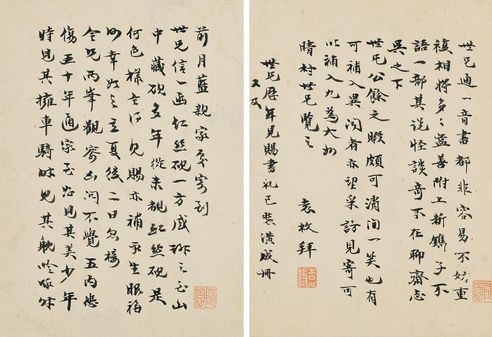 世兄通一音書都非容易不好重
複相將多多益善附上新鐫子不
語一部其說怪談奇不在聊齋志
異之下
世兄公餘之暇頗可消閒一笑也有
可補入異聞者亦望采訪見寄可
以補入九為大妙
晴村世兄覽之 袁枚拜
世兄歷年見賜書札已裝潢成冊
又及
前月藍親家處寄到
世兄信一函紅絲硯一方感珍之至山
中藏硯多年從未觀紅絲硯是
何色樣今得見賜亦補平生眼福
何幸如之立夏後二日忽接
令兄兩峯觀察凶問不覺五內悲
傷五十年通家至好見其美少年
時見其擁車騎時見其耽吟咏時